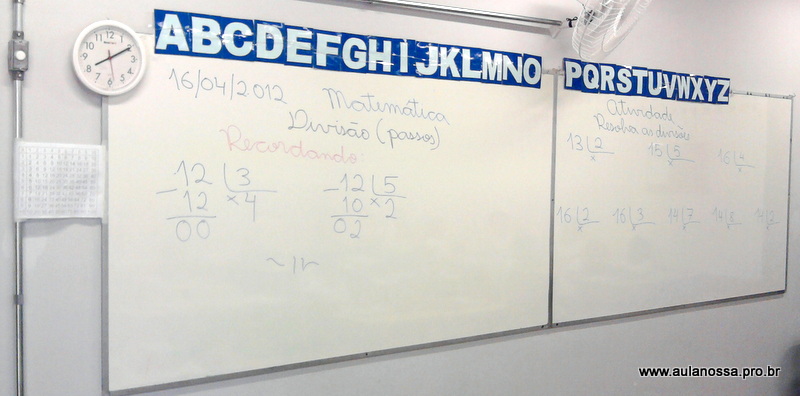 ABCDEFGHIJKLMNOPQRSTUVWXYZ
16/04/2012 Matemática
Divisão (passos)
Recordando:
12 3
- 12 x 4
00
- 12 5
10 x 2
02
Atividade
Resolva as divisões
13 2 15 5 16 4
x x x
16 2 16 3 14 7
x x x
www.aulanossa.pro.br